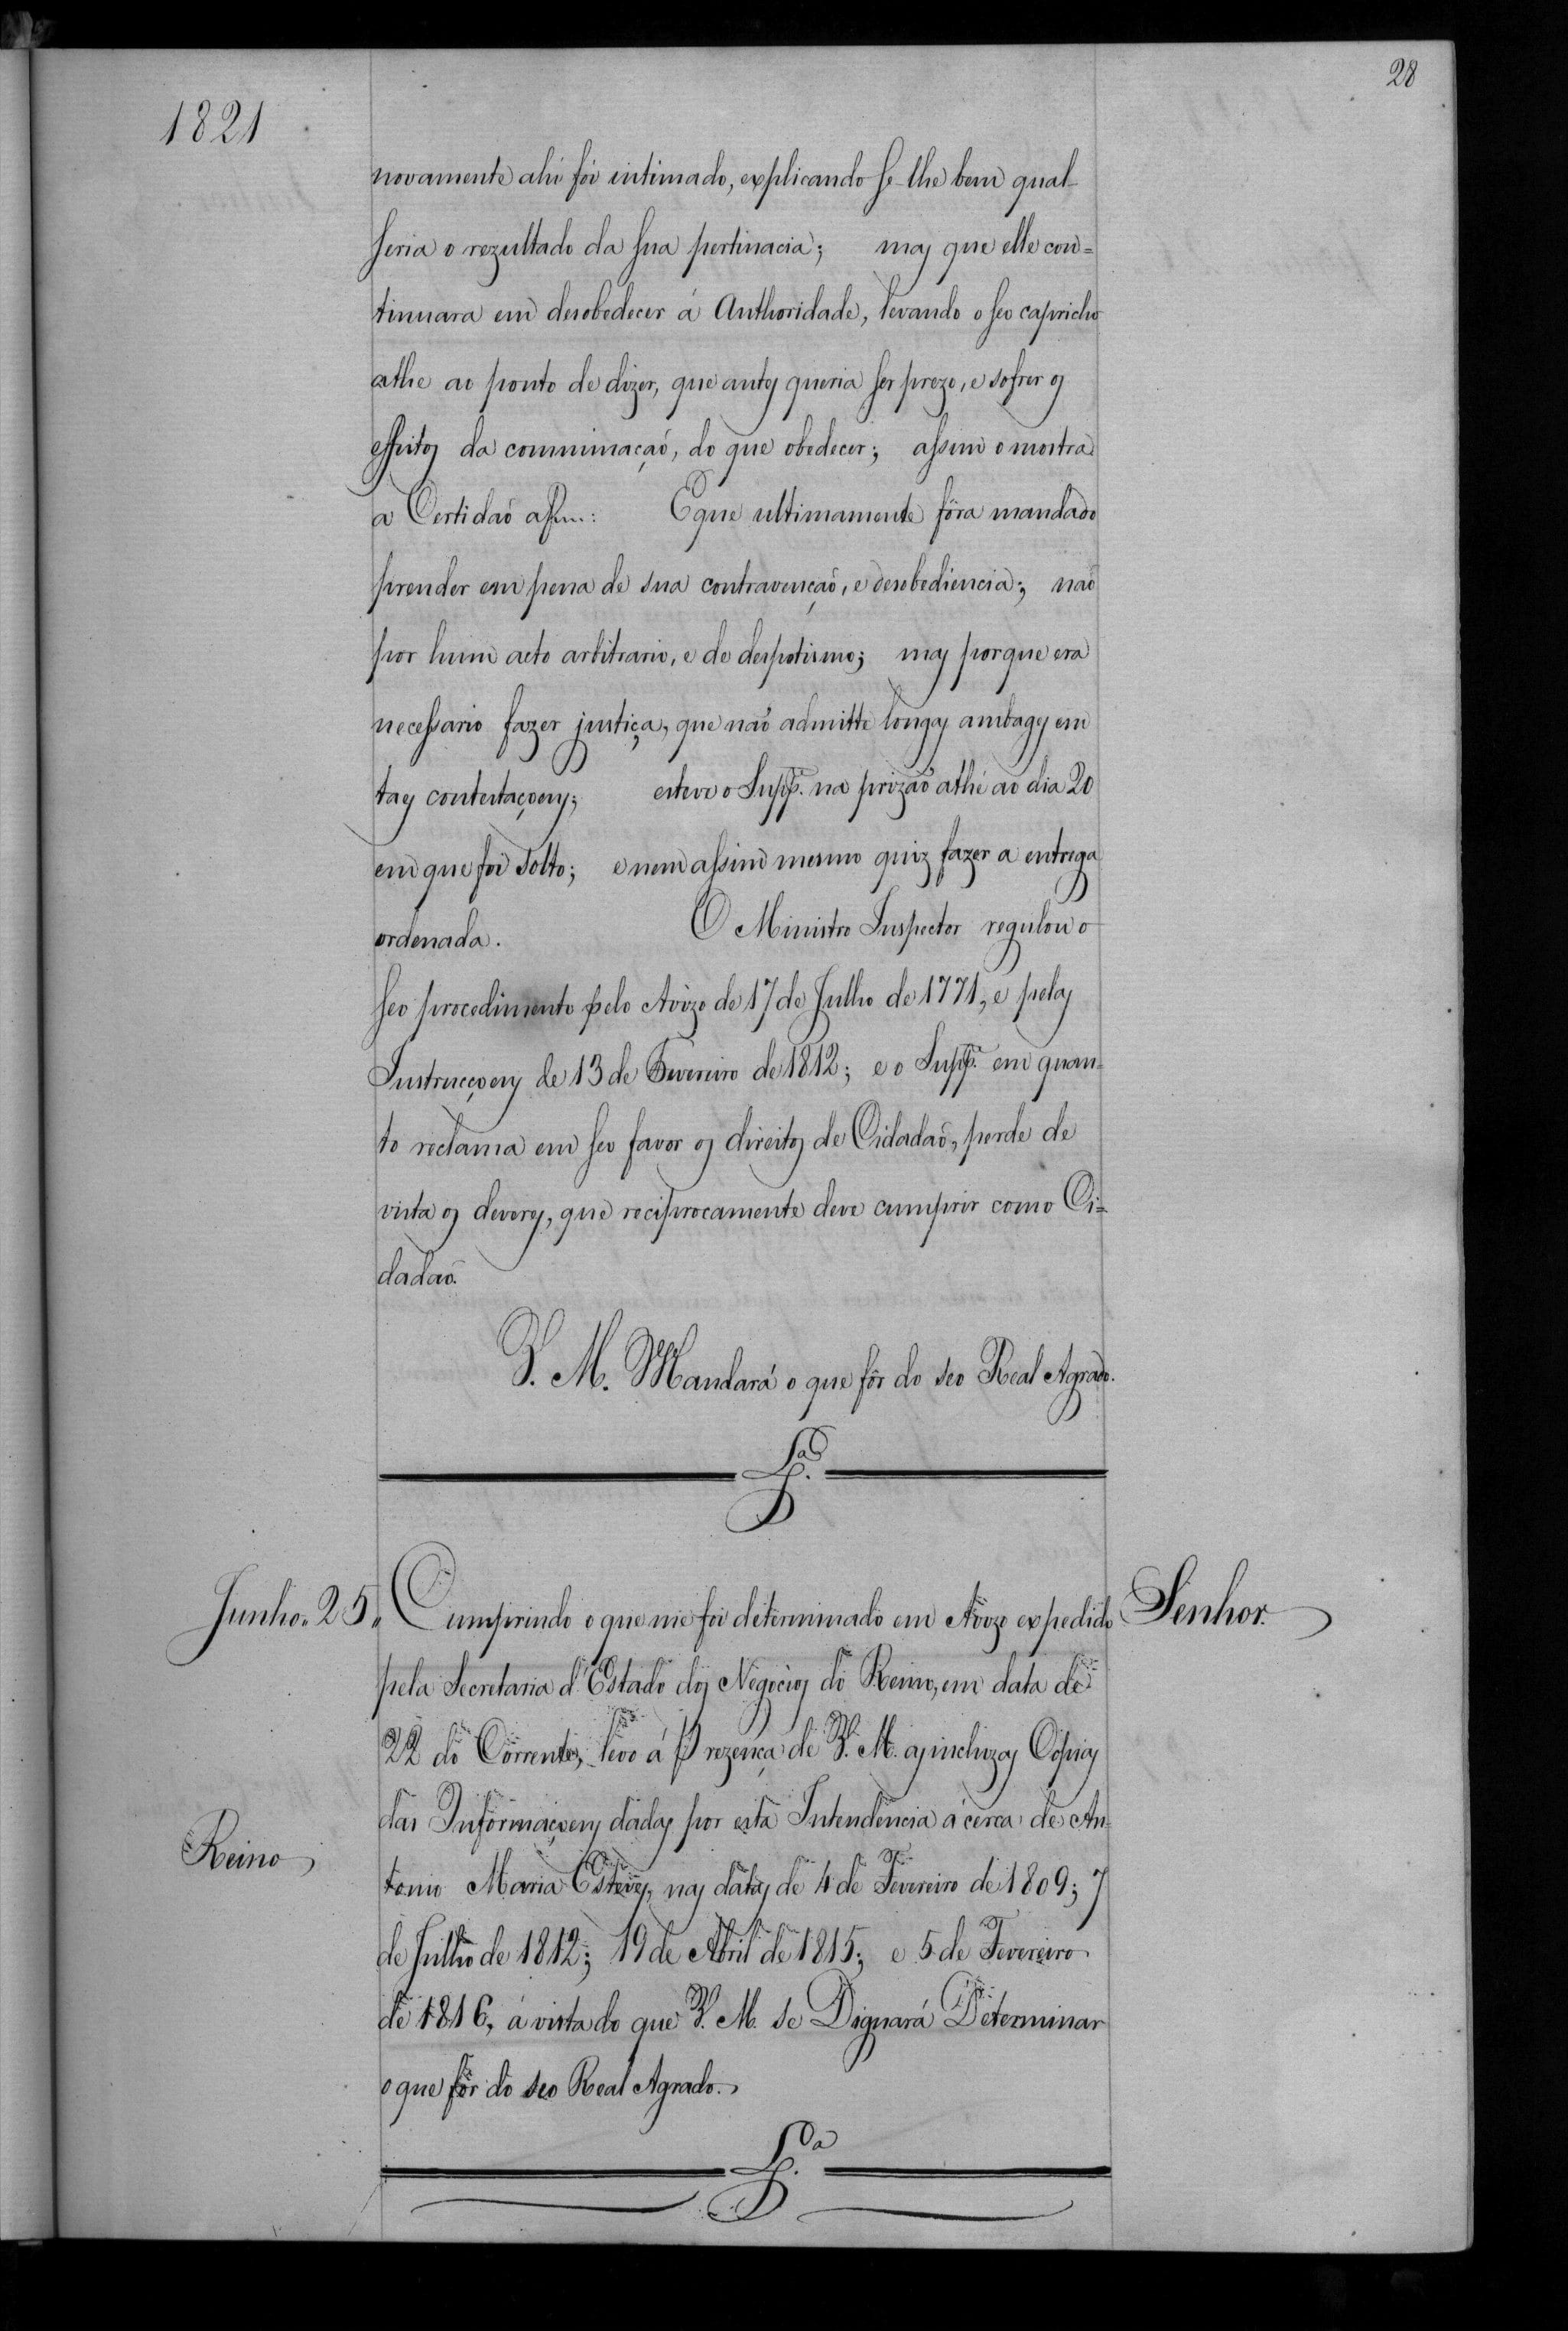 28
1821
novamente ahi foi intimado, explicando se-lhe bem qual
seria o rezultado da sua pertinacia; mas que elle con=
tinuara em desobedecer á Authoridade, levando o seo capricho
athe ao ponto de dizer, que antes queria ser prezo, e sofrer os
effeitos da comminaçaõ, do que obedecer; assim o mostra
a Certidaõ E que ultimamente fôra mandado
prender em pena de sua contravençaõ, e desobediencia; naõ
por hum acto arbitrario, e de despotismo; mas porque era
necessario fazer justiça, que naõ admitte longas ambages em
taes contestaçoens; esteve o Supp.e na prizaõ athé ao dia 20
em que foi solto; e nem assim mesmo quiz fazer a entrega
ordenada. O Ministro Inspector regulou o
seo procedimento pelo Avizo de 17 de Julho de 1771, e pelas
Instrucçoens de 13 de Fevereiro de 1812; e o Supp.e em quan=
to reclama em seo favor os direitos de Cidadaõ, perde de
vista os deveres, que reciprocamente deve cumprir como Ci=
dadaõ.
V. M. Mandará o que fôr do seo Real Agrado.
L.a
Junho 25 Cumprindo o que me foi determinado em Avizo expedido Senhor.
pela Secretaria d'Estado dos Negocios do Reino, em data de
22 do Corrente, levo á Prezença de V. M. as incluzas Copias
das Informaçoens dadas por esta Intendencia ácerca de An=
Reino
tonio Maria Esteves, nas datas de 4 de Fevereiro de 1809; 7
de Julho de 1812; 19 de Abril de 1815; e 5 de Fevereiro
de 1816, á vista do que V. M. se Dignará Determinar
o que fôr do seo Real Agrado.
L.a